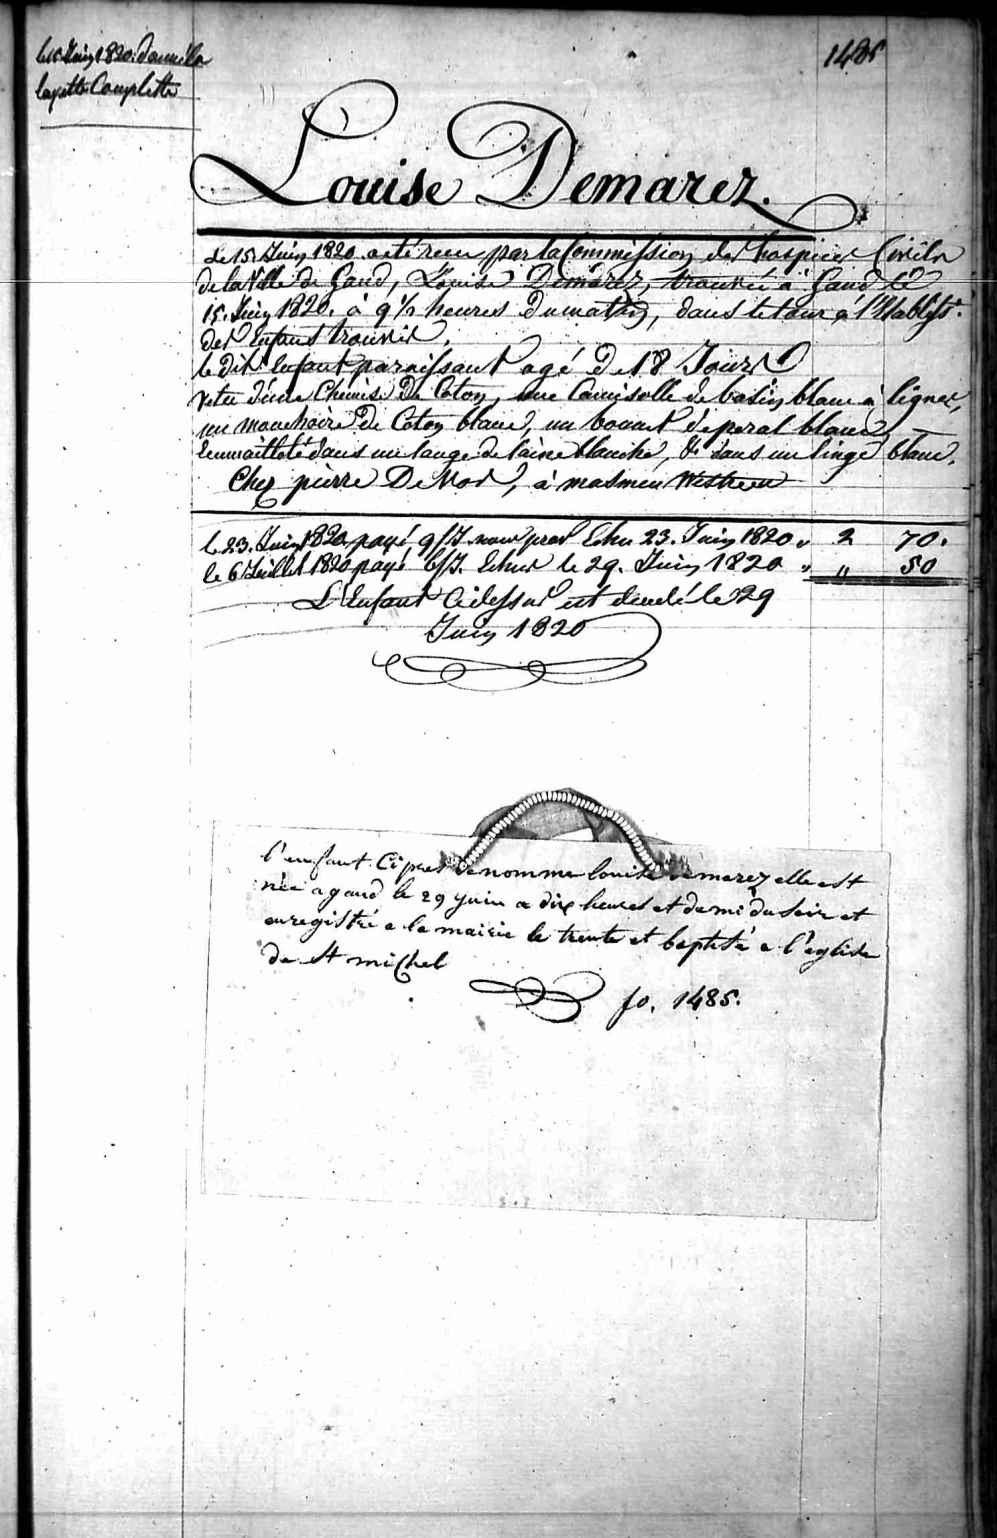 le 15 Juin 1820. donné la
layette Complette
1485
Louise Demarez.
Le 15 Juin 1820 a été recu par la Commission des hospices Civils
de la Ville de Gand, Louise Demarez, trouvée à Gand le
15. Juin 1820. à 9 1/2 heures du matin, dans le tour à l'Etablisst.
des Enfans trouvés.
le dit Enfant paraissant agé De 18 Jours
vetu d'une Chemise De Coton, une Camisolle de basin blanc à lignes,
un mouchoire De Coton blanc, un bonnet de peral blanc,
Emmailloté dans un lange de laine blanche, & dans un linge blanc.
Chez pierre De Vos, à masmen Westreem
le 23. Juin 1820 payé 9/J. nour pres Echu 23. Juin 1820 „ 2 70.
le 6 Juillet 1820 payé 6/J. Echus le 29. Juin 1820 „ „ 50
L'Enfant Cidessus est décédé le 29
Juin 1820
l'enfant Ci pres denomme louise demarez elle est
née a gand le 29 yuin a dix heures et demi du soir et
enregistrée a la mairie le trente et baptisé a l'eglise
de St michel
fo. 1485.